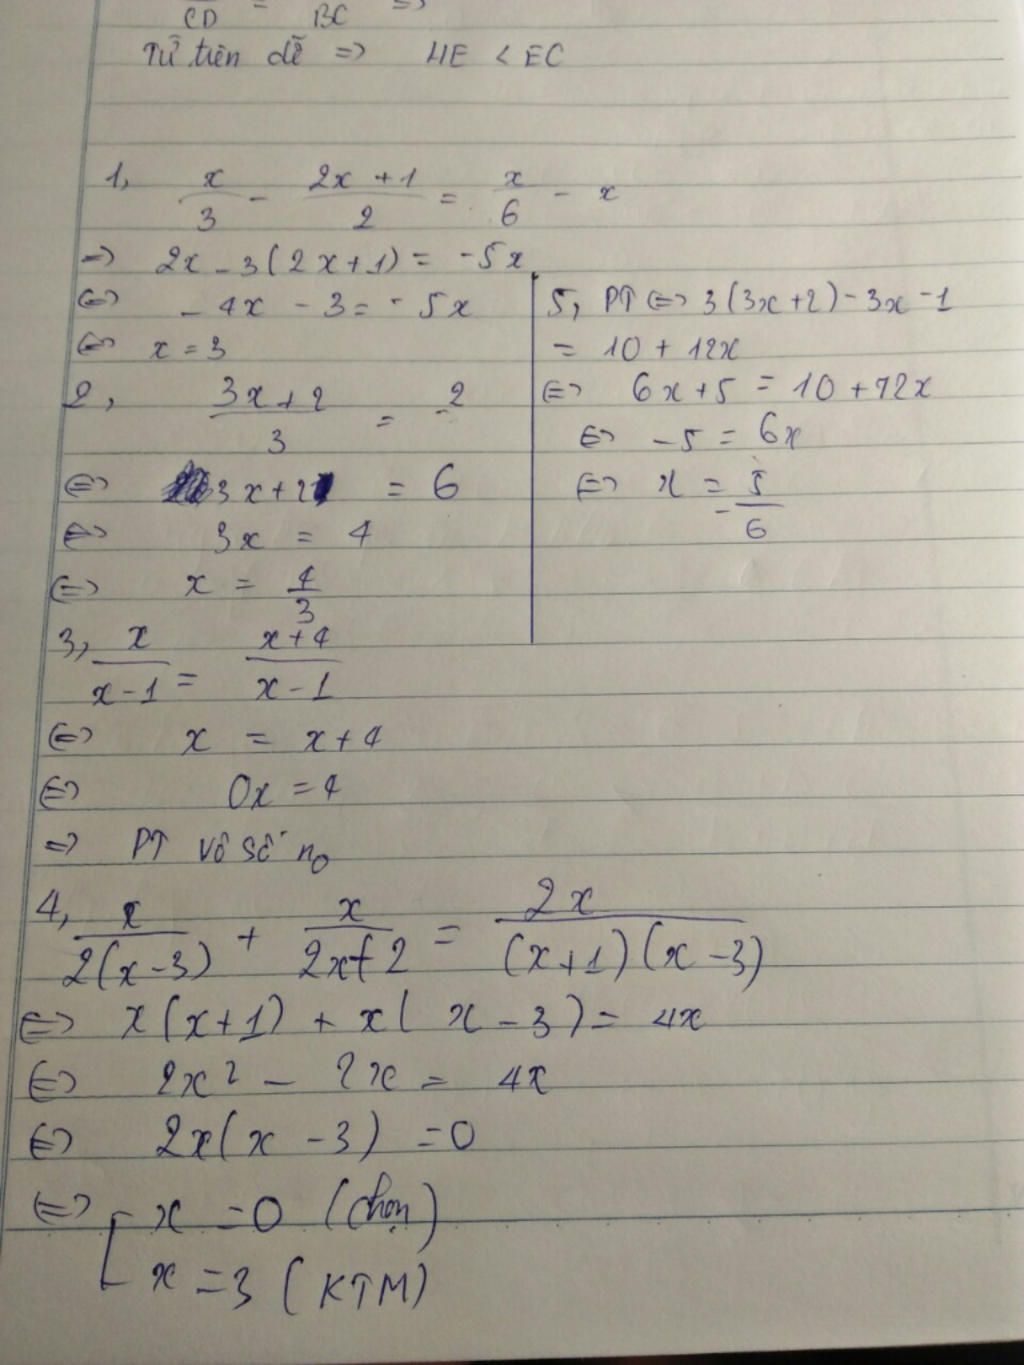 CD = BC =>
Từ trên dễ => HE < EC
1, x/3 - (2x+1)/2 = x/6 - x
=> 2x - 3(2x+1) = -5x
<=> -4x - 3 = -5x
<=> x = 3
2, (3x+2)/3 = 2
<=> 3x+2 = 6
<=> 3x = 4
<=> x = 4/3
3, x/(x-1) = (x+4)/(x-1)
<=> x = x+4
<=> 0x = 4
=> PT vô số n₀
4, x/(2(x-3)) + x/(2x+2) = 2x/((x+1)(x-3))
<=> x(x+1) + x(x-3) = 4x
<=> 2x² - 2x = 4x
<=> 2x(x-3) = 0
<=> [ x = 0 (chọn)
x = 3 (KTM)
5, PT <=> 3(3x+2) - 3x - 1
= 10 + 12x
<=> 6x+5 = 10+12x
<=> -5 = 6x
<=> x = -5/6